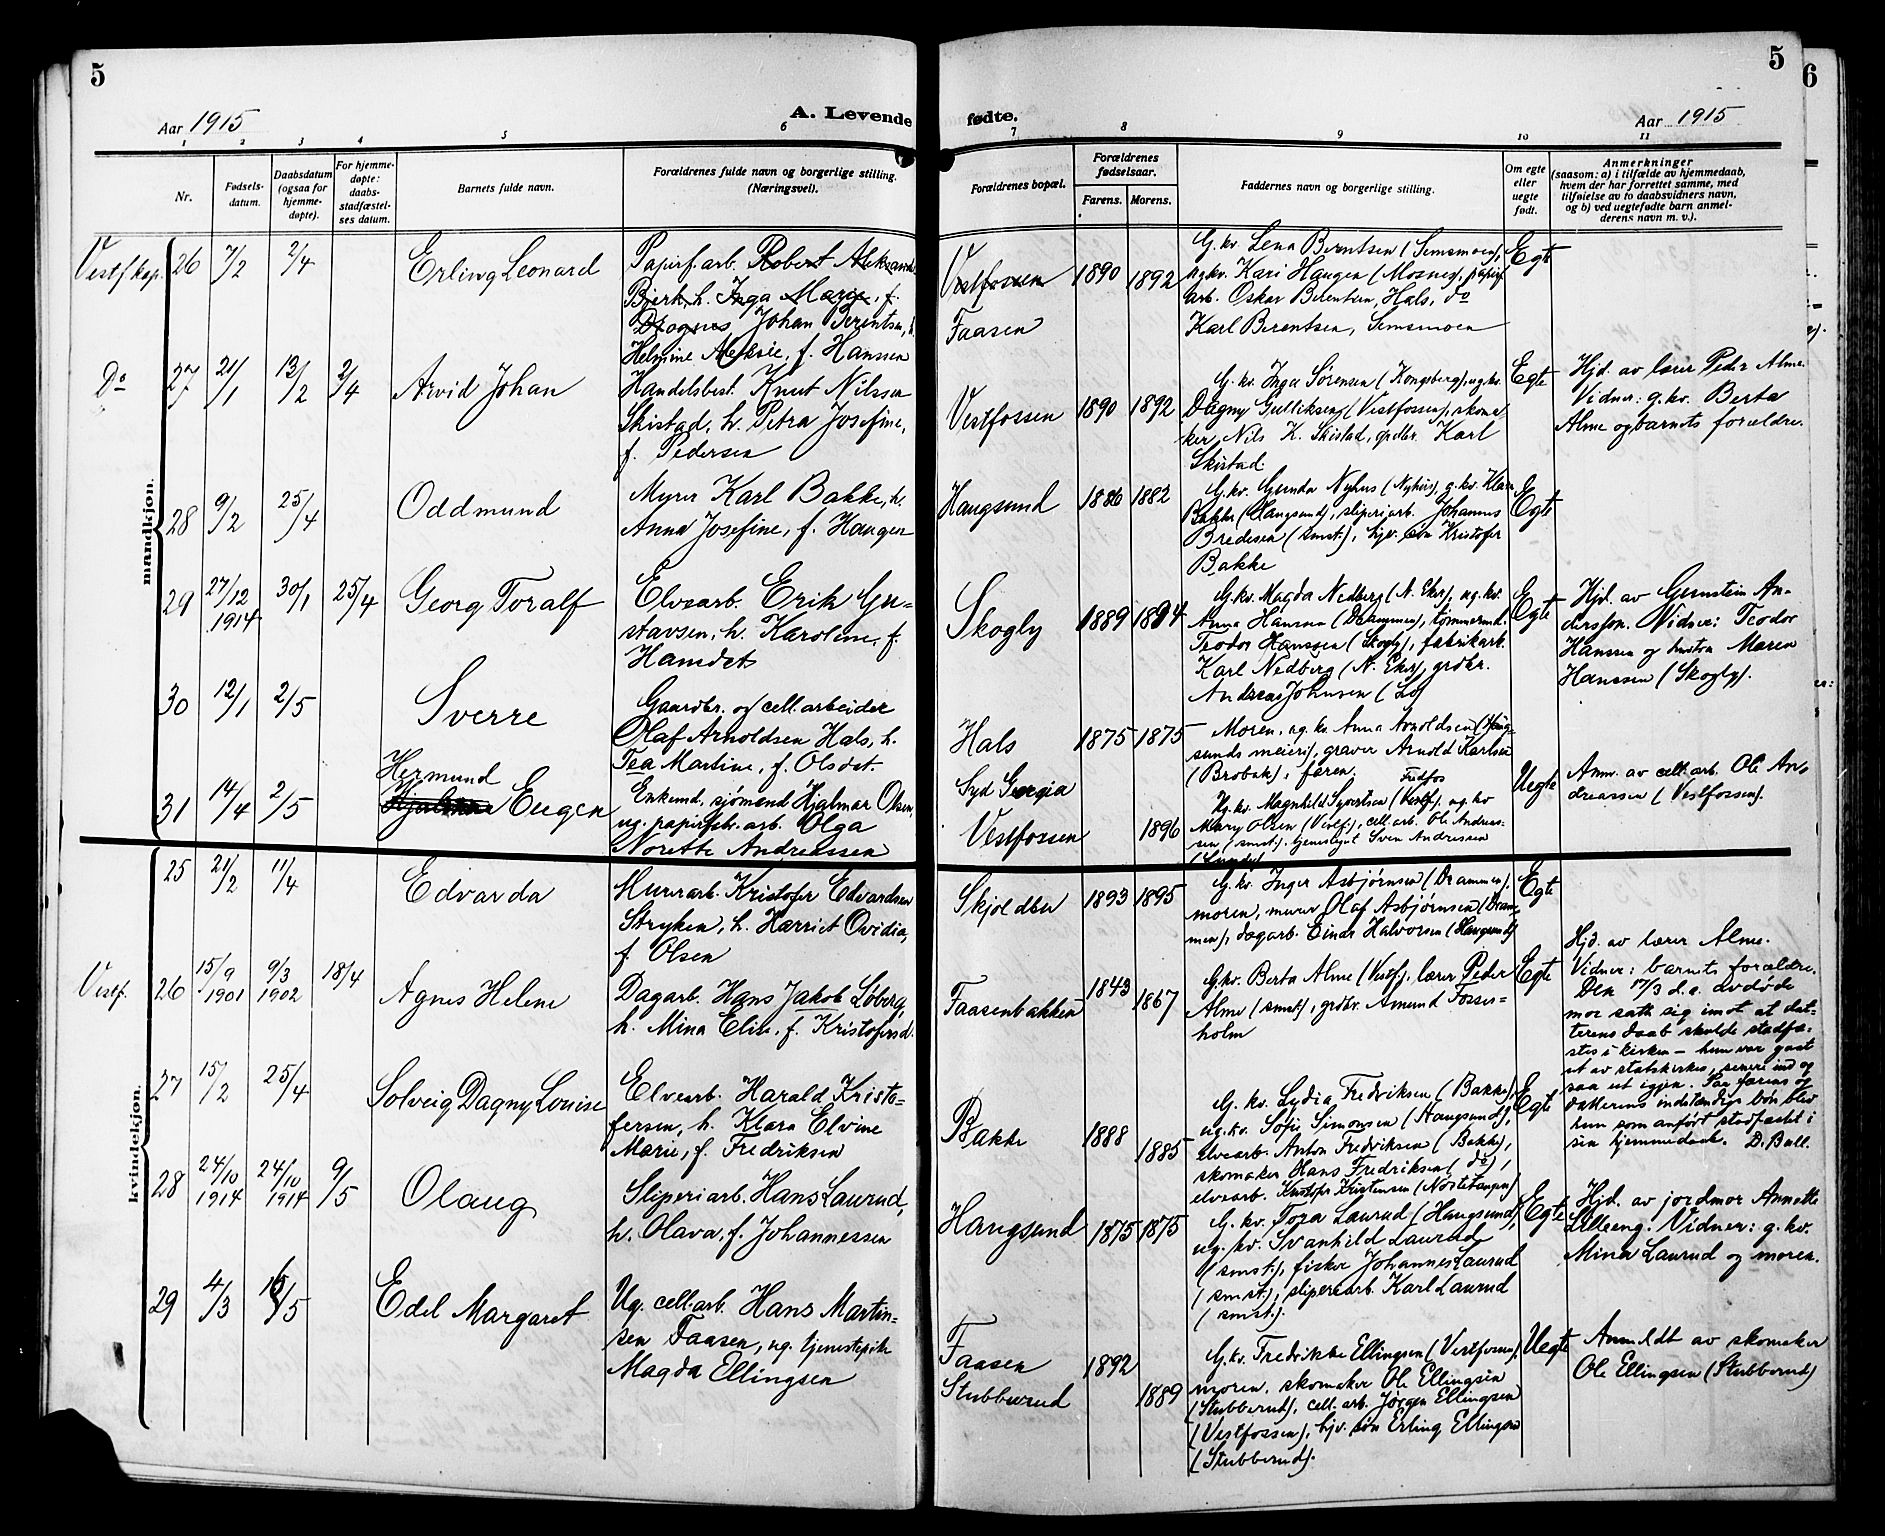 5
5
6
Aar 1915
A. Levende
fødte.
Aar 1915
1 2 3 4 5 6 7 8 9 10 11
Nr.
Fødsels-
datum.
Daabsdatum
(ogsaa for
hjemme-
døpte).
For hjemme-
døpte:
daabs-
stadfæstel-
ses datum.
Barnets fulde navn.
Forældrenes fulde navn og borgerlige stilling.
(Næringsvei).
Forældrenes bopæl.
Forældrenes
fødselsaar.
Farens. Morens.
Faddernes navn og borgerlige stilling.
Om egte
eller
uegte
født.
Anmerkninger
(saasom: a) i tilfælde av hjemmedaab,
hvem der har forrettet samme, med
tilføielse av to daabsvidners navn,
og b) ved uegtefødte barn anmel-
derens navn m. v.).
mandkjøn.
Vestf kap. 26 7/2 2/4
Erling Leonard
Papirf. arb. Robert Aleksand.
Bjerk, h. Inga Marie, f.
Johan Berentsen, h.
Helmine Aleksie, f. Hansen
Vestfossen
Faasen
1890 1892
G. kv. Lena Berntsen (Semsmoen),
ug. kv. Kari Haugen (Mosnes), papirf.
arb. Oskar Berentsen, Hals, do
Karl Berentsen, Semsmoen
Egte
Do 27 21/1 13/2 2/4
Arvid Johan
Handelsbest. Knut Nilssen
Skistad, h. Petra Josefine,
f. Pedersen
Vestfossen
1890 1892
G. kv. Inga Sørensen (Kongsberg), ug. kv.
Dagny Gulliksen (Vestfossen), skoma-
ker Nils K. Skistad, grdbr. Karl
Skistad.
Egte
Hjd. av lærer Peder Alme.
Vidner: g. kv. Berta
Alme og barnets forældre.
28 9/2 25/4
Oddmund
Myrer Karl Bakke, h.
Anna Josefine, f. Haugen
Haugsund
1886 1882
G. kv. Gunda Nyhus (Nyhus), g. kv. Klara
Bakke (Haugsund), sliperiarb. Johannes
Bredesen (smst.), hjv. søn Kristofer
Bakke
Egte
29 27/12 1914 30/1 25/4
Georg Toralf
Elvearb. Erik Gu-
stavsen, h. Karoline, f.
Hansdat.
Skogly
1889 1894
G. kv. Magda Nedberg (N. Eker), ug. kv.
Anna Hansen (Drammen), tømmerm.
Teodor Hanssen (Skogly), fabrikarb.
Karl Nedberg (N. Eker), grdbr.
Andreas Johnsen (Lo)
Egte
Hjd. av Gernstein An-
dersson. Vidner: Teodor
Hanssen og hustru Maren
Hanssen (Skogly).
30 12/1 2/5
Sverre
Gaardbr. og cell. arbeider
Olaf Arnoldsen Hals, h.
Tea Martine, f. Olsdat.
Hals
1875 1875
Moren, ug. kv. Anna Arnoldsen (Haug-
sunds meieri), graver Arnold Karlsen
(Brobak), faren.
31 14/4 2/5
Hermund
Eugen
Enkemd, sjømand Hjalmar Olsen,
ug. papirfabr. arb. Olga
Norette Andreassen
Syd Georgia
Vestfossen
1896
Fredfos
Ug. kv. Magnhild Syvertsen (Vestf.), ug. kv
Mary Olsen (Vestf.), cell. arb. Ole Andreas-
sen (smst.), tjenestegut Sven Andreassen
Uegte
Anm. av cell. arb. Ole An-
dreassen (Vestfossen).
kvindekjøn.
25 21/2 11/4
Edvarda
Murerarb. Kristofer Edvardsen
Stryken, h. Harriet Ovidia,
f. Olsen
Skjoldber
1893 1895
G. kv. Inger Asbjørnsen (Drammen),
moren, murer Olaf Asbjørnsen (Dram-
men), dagarb. Einar Halvorsen (Haugsund)
Egte
Vestf. 26 15/9 1901 9/3 1902 18/4
Agnes Helene
Dagarb. Hans Jakob Løberg,
h. Mina Elise, f. Kristofersd.
Faasenbakken
1843 1867
G. kv. Berta Alme (Vestf.), lærer Peder
Alme (smst.), grdbr. Amund Fosses-
holm
Egte
Hjd. av lærer Alme.
Vidner: barnets forældre.
Den 17/3 d. a. avdøde
mor satte sig imot at dat-
terens daab skulde stadfæ-
stes i kirken – hun var gaat
ut av statskirken, senere ind og
saa ut igjen. Paa farens og
datterens indstændige bøn blev
hun som anført stadfæstet i
sin hjemmedaab. D. Ball.
27 15/2 25/4
Solveig Dagny Louise
Elvearb. Harald Kristo-
fersen, h. Klara Elvine
Marie, f. Fredriksen
Bakke
1888 1885
G. kv. Lydia Fredriksen (Bakke),
ug. kv. Sofie Simonsen (Haugsund),
elvearb. Anton Fredriksen (Bakke),
skomaker Hans Fredriksen (do),
elvearb. Kristofer Kristensen (Nøstetangen)
Egte
28 24/10 1914 24/10 1914 9/5
Olaug
Sliperiarb. Hans Laurud,
h. Olava, f. Johannessen
Haugsund
1875 1875
G. kv. Tora Laurud (Haugsund),
ug. kv. Svanhild Laurud
(smst.), fisker Johannes Laurud
(smst.), sliperiarb. Karl Laurud
(smst.).
Egte
Hjd. av jordmor Annette
Lilleeng. Vidner: g. kv.
Mina Laurud og moren.
29 4/3 16/5
Edel Margaret
Ug. cell. arb. Hans Martin-
sen Faasen, ug. tjenestepike
Magda Ellingsen
Faasen
Stubberud
1892 1889
G. kv. Fredrikke Ellingsen (Vestfossen),
moren, skomaker Ole Ellingsen
(Stubberud), cell. arb. Jørgen Ellingsen
(Vestfossen), hjv. søn Erling Ellingsen
(Stubberud).
Uegte
Anmeldt av skomaker
Ole Ellingsen (Stubberud)